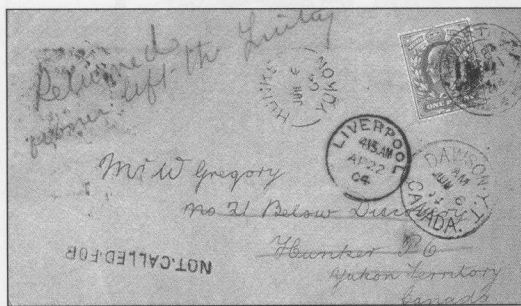 Returned
left the
HUNKER
YUKON
LIVERPOOL
4.15 AM
AP 22
04
DAWSON, Y.T.
AM
JUN
CANADA.
Mr W Gregory
No 21 Below Discovery
Hunker P O
Yukon Territory
Canada
NOT CALLED FOR